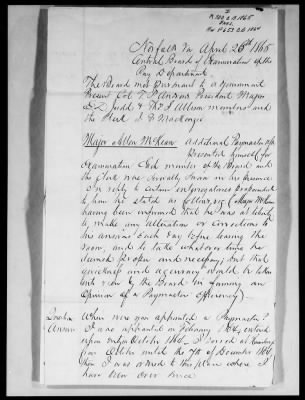 Norfolk Va April 26th 1865
Central Board of Examination of the
Pay Department.
The Board met pursuant to adjournment
Present Col T. P. Andrews President Major
E. D. Judd & Wm. P. Allison members and
the Clerk J. D. MacKenzie
Major Allen McKean additional Paymaster
presented himself for
Examination. Each member of the Board and
the Clerk was severally sworn in his presence
In reply to certain interrogatories propounded
to him he stated as follows, viz (Major McKean
having been informed that he was at liberty
to make any alteration or corrections to
his answers each day before leaving the
room, and to take whatever time he
deemed proper and necessary, but that
quickness and accuracy would be taken
into view by the Board in forming an
Opinion of a Paymaster efficiency)
Question When were you appointed a Paymaster?
Answer I was appointed in February 1864, entered
upon duty in October 1864. I served at
from October until the 7th of December 1864,
then I was ordered to this place where I
have been ever since